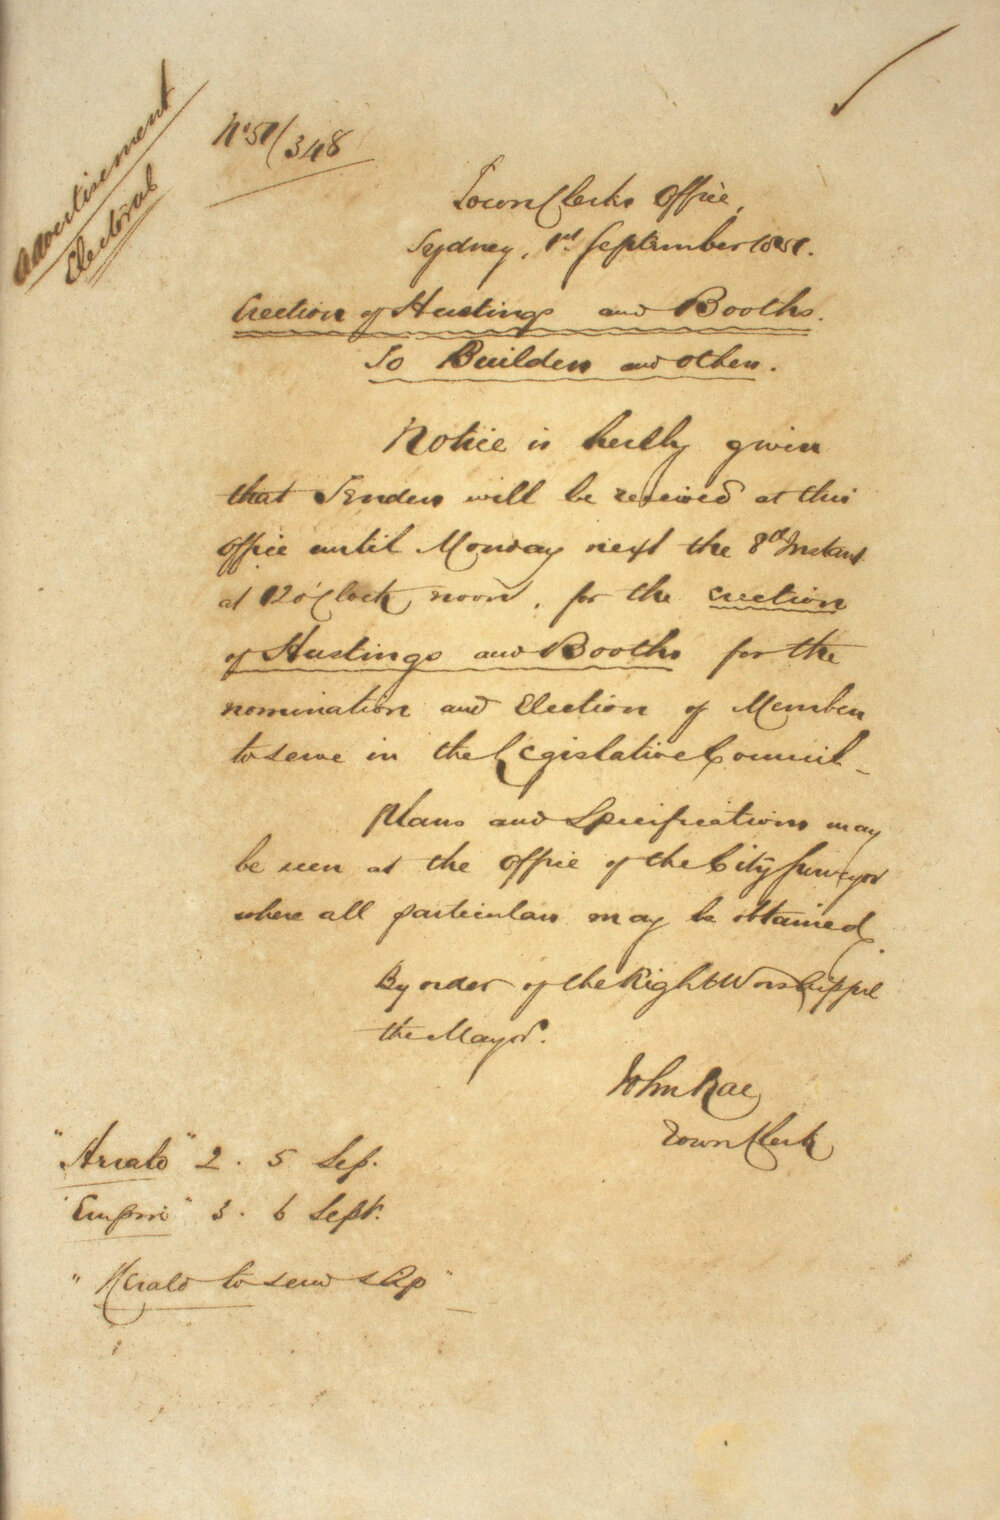 Advertisement
Electoral
No 51/348
Town Clerks Office,
Sydney, 1st September 1851.
Erection of Hustings and Booths.
To Builders and others.
Notice is hereby given
that Tenders will be received at this
Office until Monday next the 8th Instant
at 12 o'Clock noon, for the erection
of Hustings and Booths for the
nomination and Election of Members
to serve in the Legislative Council_
Plans and Specifications may
be seen at the Office of the City Surveyor
where all particulars may be obtained.
By order of the Right Worshipful
the Mayor.
John Rae
Town Clerk
"Herald" 2. 5 Sep.
"Empire" 3. 6 Sept.
"Herald to send slip"